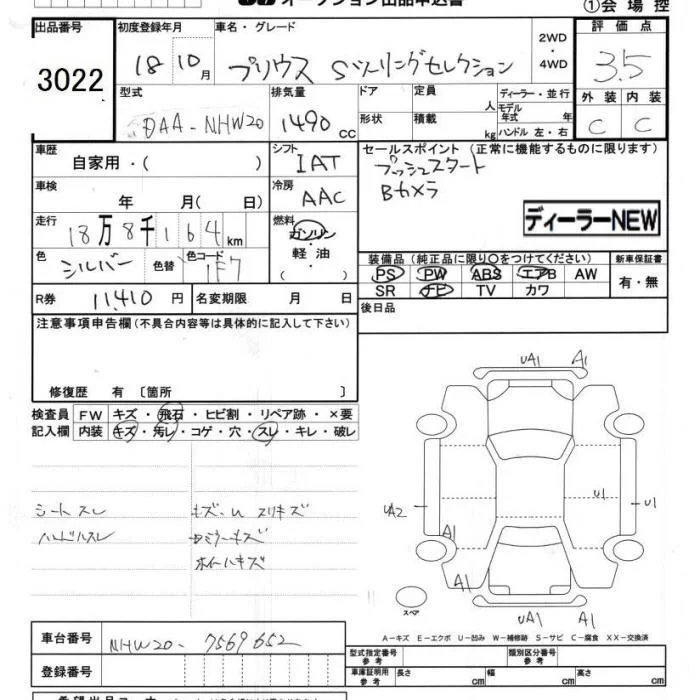 オークション出品申込書
①会場控
出品番号
3022
初度登録年月
18 10月
車名・グレード
プリウス Sツーリングセレクション
2WD
・
4WD
評価点
3.5
外装 内装
C C
型式
DAA-NHW20
排気量
1490 cc
ドア
定員
人
形状
積載
kg
ディーラー・並行
モデル年式 年
ハンドル 左・右
車歴
自家用・( )
シフト
IAT
セールスポイント (正常に機能するものに限ります)
プッシュスタート
Bカメラ
ディーラーNEW
車検
年 月( 日)
冷房
AAC
走行
18万8千164km
燃料
ガソリン
・
軽油
・
( )
色
シルバー
色替
色コード
1F7
装備品 (純正品に限り○をつけてください)
PS PW ABS エアB AW
SR ナビ TV カワ
新車保証書
有・無
R券
11,410円
名変期限 月 日
後日品
注意事項申告欄(不具合内容等は具体的に記入して下さい)
修復歴 有 〔箇所 〕
検査員記入欄
FW キズ・飛石・ヒビ割・リペア跡・×要
内装 キズ・汚レ・コゲ・穴・スレ・キレ・破レ
シートスレ
ハンドルスレ
キズ・U スリキズ
ホイールキズ
UA1 A1
UA2
U1
U1
A1
A1
UA1 A1
スペア
A-キズ E-エクボ U-凹み W-補修跡 S-サビ C-腐食 XX-交換済
車台番号
NHW20-7569652
登録番号
型式指定番号
参考
類別区分番号
参考
車庫証明用
参考
長さ cm
幅 cm
高さ cm